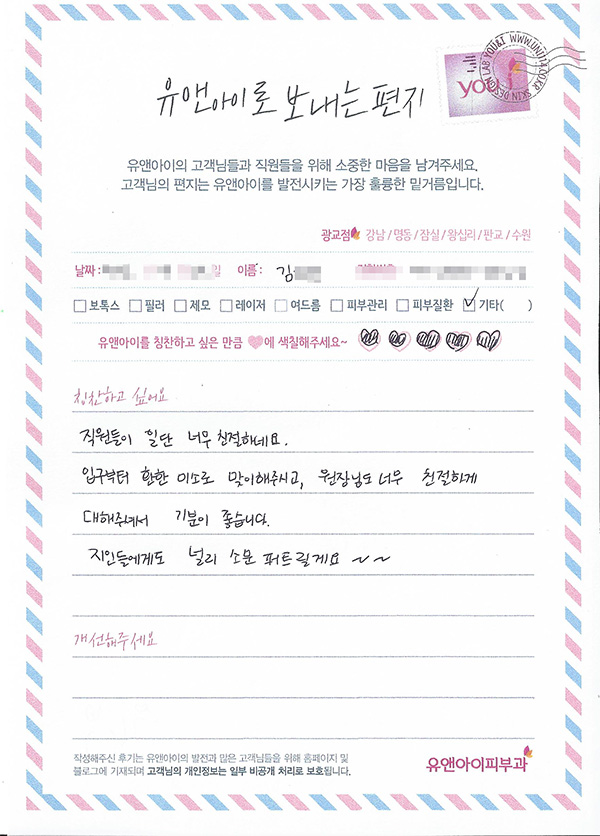 유앤아이로 보내는 편지
you
SKIN DESIGN LAB YOU&I WWW.UNI114.CO.KR
유앤아이의 고객님들과 직원들을 위해 소중한 마음을 남겨주세요.
고객님의 편지는 유앤아이를 발전시키는 가장 훌륭한 밑거름입니다.
광교점 강남 / 명동 / 잠실 / 왕십리 / 판교 / 수원
날짜 : 일 이름 : 김
보톡스 필러 제모 레이저 여드름 피부관리 피부질환 기타( )
유앤아이를 칭찬하고 싶은 만큼 에 색칠해주세요~
칭찬하고 싶어요
직원들이 일단 너무 친절하네요.
입구부터 환한 미소로 맞이해주시고, 원장님도 너무 친절하게
대해주셔서 기분이 좋습니다.
지인들에게도 널리 소문 퍼트릴게요 ~ ~
개선해주세요
작성해주신 후기는 유앤아이의 발전과 많은 고객님들을 위해 홈페이지 및
블로그에 기재되며 고객님의 개인정보는 일부 비공개 처리로 보호됩니다.
유앤아이피부과